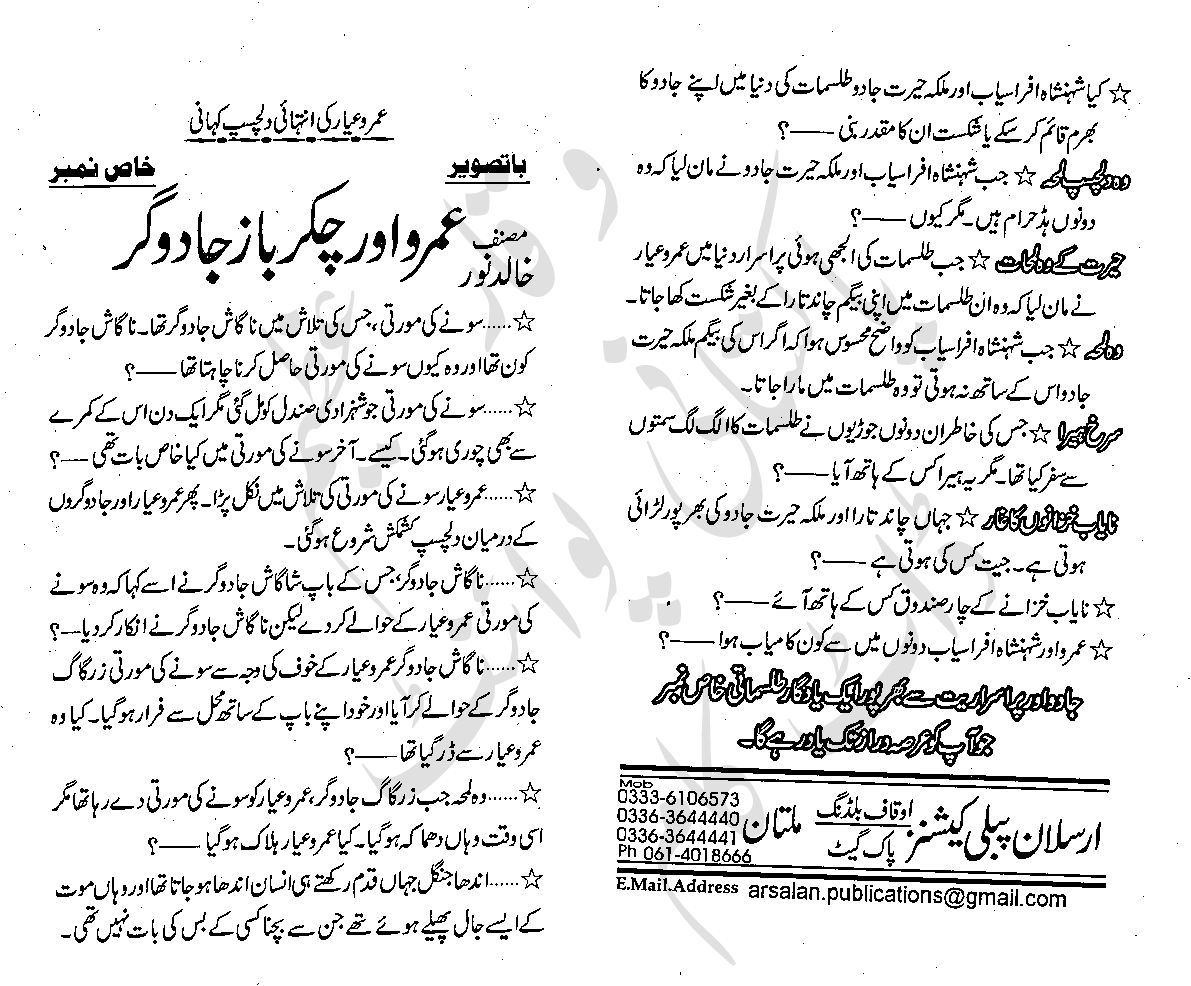 ☆ کیا شہنشاہ افراسیاب اور ملکہ حیرت جادو طلسمات کی دنیا میں اپنے جادو کا
بھرم قائم کر سکے یا شکست ان کا مقدر بنی ——؟
وہ دلچسپ لمحہ ☆ جب شہنشاہ افراسیاب اور ملکہ حیرت جادو نے مان لیا کہ وہ
دونوں ہڈ حرام ہیں۔ مگر کیوں ——؟
حیرت کے وہ لمحات ☆ جب طلسمات کی الجھی ہوئی پراسرار دنیا میں عمرو عیار
نے مان لیا کہ وہ ان طلسمات میں اپنی بیگم چاند تارا کے بغیر شکست کھا جاتا۔
وہ لمحہ ☆ جب شہنشاہ افراسیاب کو واضح محسوس ہوا کہ اگر اس کی بیگم ملکہ حیرت
جادو اس کے ساتھ نہ ہوتی تو وہ طلسمات میں مارا جاتا۔
سرخ ہیرا ☆ جس کی خاطر ان دونوں جوڑیوں نے طلسمات کا الگ الگ سمتوں
سے سفر کیا تھا۔ مگر یہ ہیرا کس کے ہاتھ آیا ——؟
نایاب خزانوں کا غار ☆ جہاں چاند تارا اور ملکہ حیرت جادو کی بھرپور لڑائی
ہوتی ہے۔ جیت کس کی ہوتی ہے ——؟
☆ نایاب خزانے کے چار صندوق کس کے ہاتھ آئے ——؟
☆ عمرو اور شہنشاہ افراسیاب دونوں میں سے کون کامیاب ہوا ——؟
جادو اور پراسراریت سے بھرپور ایک یادگار طلسماتی خاص نمبر
جو آپ کو عرصہ دراز تک یاد رہے گا۔
ارسلان پبلی کیشنز اوقاف بلڈنگ پاک گیٹ ملتان
Mob
0333-6106573
0336-3644440
0336-3644441
Ph 061-4018666
E.Mail.Address arsalan.publications@gmail.com
عمرو عیار کی انتہائی دلچسپ کہانی
باتصویر خاص نمبر
عمرو اور چکر باز جادوگر
مصنف
خالد نور
☆......سونے کی مورتی، جس کی تلاش میں ناگاش جادوگر تھا۔ ناگاش جادوگر
کون تھا اور وہ کیوں سونے کی مورتی حاصل کرنا چاہتا تھا ——؟
☆......سونے کی مورتی جو شہزادی صندل کو مل گئی مگر ایک دن اس کے کمرے
سے بھی چوری ہو گئی۔ کیسے۔ آخر سونے کی مورتی میں کیا خاص بات تھی ——؟
☆......عمرو عیار سونے کی مورتی کی تلاش میں نکل پڑا۔ پھر عمرو عیار اور جادوگروں
کے درمیان دلچسپ کشمکش شروع ہو گئی۔
☆......ناگاش جادوگر، جس کے باپ شاگاش جادوگر نے اسے کہا کہ وہ سونے
کی مورتی عمرو عیار کے حوالے کر دے لیکن ناگاش جادوگر نے انکار کر دیا ——؟
☆......ناگاش جادوگر عمرو عیار کے خوف کی وجہ سے سونے کی مورتی زرگاگ
جادوگر کے حوالے کر آیا اور خود اپنے باپ کے ساتھ محل سے فرار ہو گیا۔ کیا وہ
عمرو عیار سے ڈر گیا تھا ——؟
☆......وہ لمحہ جب زرگاگ جادوگر، عمرو عیار کو سونے کی مورتی دے رہا تھا مگر
اسی وقت وہاں دھماکہ ہو گیا۔ کیا عمرو عیار ہلاک ہو گیا ——؟
☆......اندھا جنگل جہاں قدم رکھتے ہی انسان اندھا ہو جاتا تھا اور وہاں موت
کے ایسے جال پھیلے ہوئے تھے جن سے بچنا کسی کے بس کی بات نہیں تھی۔